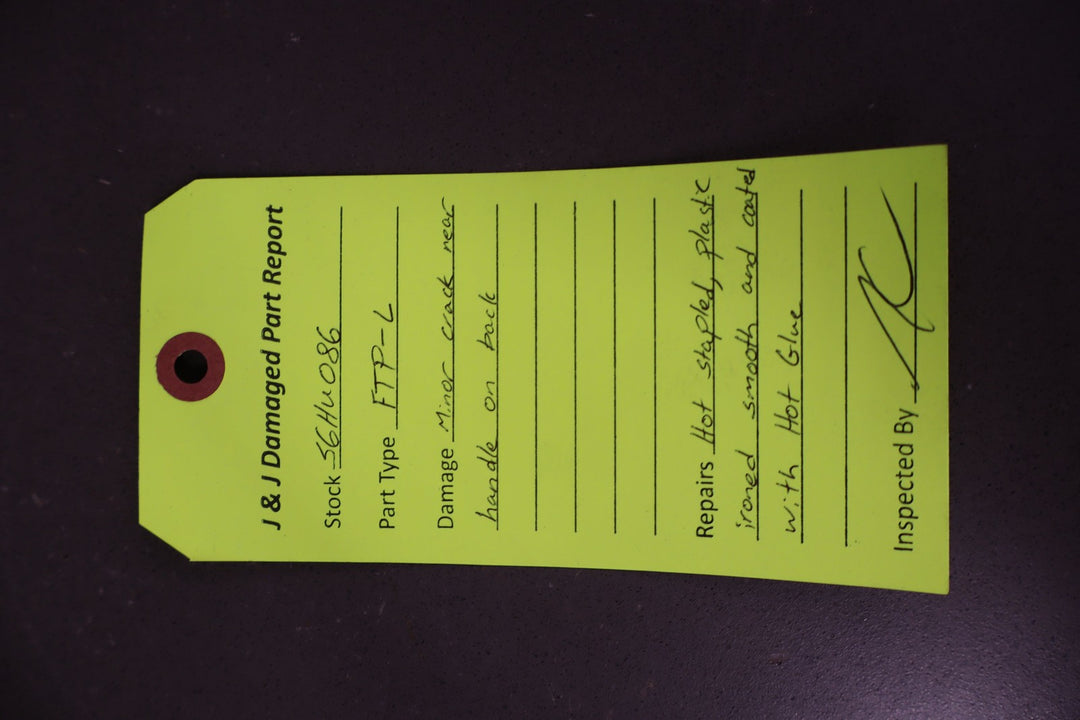 J & J Damaged Part Report
Stock 56HU086
Part Type FTP-L
Damage Minor crack near
handle on back
Repairs Hot stapled, plastic
ironed smooth and coated
with Hot Glue
Inspected By